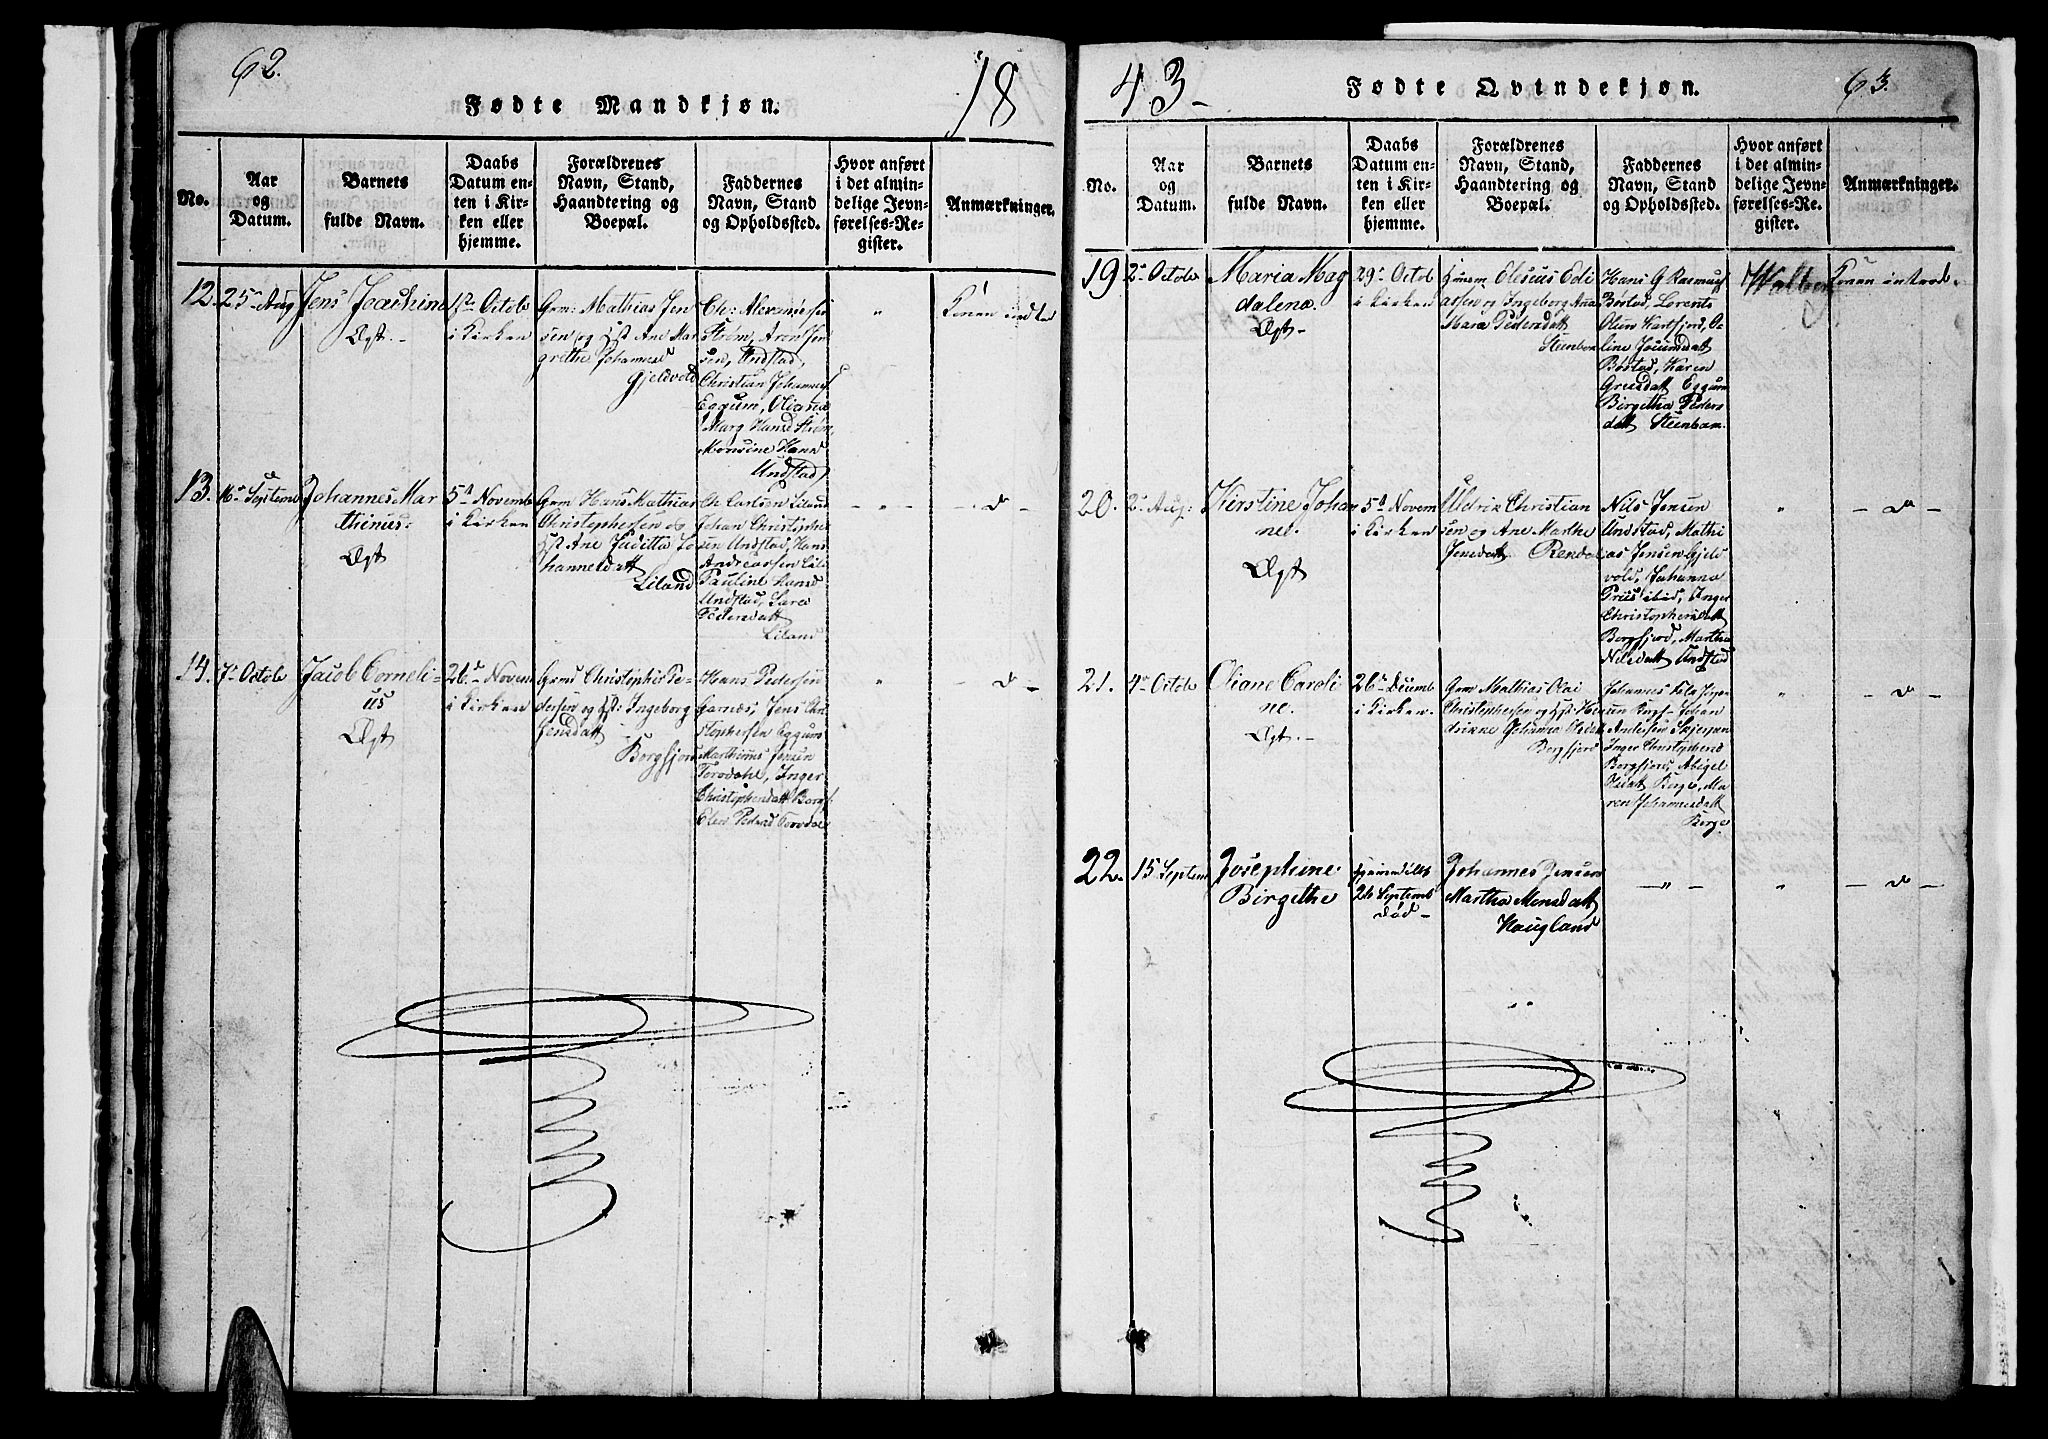 62.
Fødte Mandkjøn.
18
No.
Aar
og
Datum.
Barnets
fulde Navn.
Daabs
Datum en-
ten i Kir-
ken eller
hjemme.
Forældrenes
Navn, Stand,
Haandtering og
Boepæl.
Faddernes
Navn, Stand
og Opholdssted.
Hvor anført
i det almin-
delige Jevn-
førelses-Re-
gister.
Anmærkninger.
12.
25 Aug
Jens Joachim
Ægt.
1ste Octob
i Kirken
Grm: Mathias Jen
sen og Hst Ane Mar
grethe Johannesd
Gjeldvold
Strøm, Aren Jen
sen, Undstad,
Christian Johannes
Eggum, Oliana
Marg Hansd Strøm
Monsine Hansd
Undstad
"
Konen
13.
16 Septemb
Johannes Mar
thinus.
Ægt
5d Novemb
i Kirken
Grm Hans Mathias
Christophersen og
Hst Ane Juditta Jo
hannesdatt
Liland
Chr Carlsen Liland
Johan Christophe
sen Undstad, Hans
Andreassen Lila
Pauline Hansd
Undstad, Sara
Pedersdatt
Liland
- d -
14.
7 Octob
Jacob Corneli-
us
Ægt
26 Novem
i Kirken
Grmd Christopher Pe-
dersen og Hst: Ingeborg
Jensdatt
Borgfjord
Hans Pedersen
Garnæs, Jens Chri
stophersen Eggum
Marthinus Jensen
Torvdahl, Inger
Christophersdatt Borgf
Elen Pedersd Torvdal
"
- d -
43-
Fødte Qvindekjøn.
63.
No.
Aar
og
Datum.
Barnets
fulde Navn.
Daabs
Datum en-
ten i Kir-
ken eller
hjemme.
Forældrenes
Navn, Stand,
Haandtering og
Boepæl.
Faddernes
Navn, Stand
og Opholdssted.
Hvor anført
i det almin-
delige Jevn-
førelses-Re-
gister.
Anmærkninger.
19
2 Octob
Maria Mag
dalena
Ægt-
29 Octob
i Kirken
Elesius Edi
assen og Ingeborg Ana
Maria Pedersdatt
Steinbar
Hans G Rasmus
Bøstad, Lorents
Olsen Kartfjord, O-
line Joramsdatt
Bøstad, Karen
Greisdatt Eggum
Birgitha Peders
datt Steinbar.
Konen introd.
20.
2 Aug.
Kirstine Johan
ne.
Ægt
5d Novem
i Kirken
Uldrik Christian
sen og Ane Marthe
Jensdatt Rendal
Nils Jensen
Undstad, Mathi
as Jensen Gjeld
vold, Johanna
Priis ibid, Inger
Christophersdatt
Borgfjord, Martha
Nilsdatt Undstad
"
- d -
21.
4 Octob
Oliane Caroli
ne.
Ægt.-
26 Decemb
i Kirken.
Grm Mathias Olai
Christophersen og Hst: Hen
drikke Johanna Olsdatt
Borgfjord
Johannes
sen Borgf- Johan
Andersen
Inger Christophersd
Borgfjord, Abigel
Olsdatt Borge, Ma
ren Johannesdatt
Borge
"
- d -
22.
15 Septem
Josephine
Birgithe
hjemmedøbt
26 Septemb
død-
Johannes Jensen
Martha Monsdatt
Haugland
- " -
"
- d -